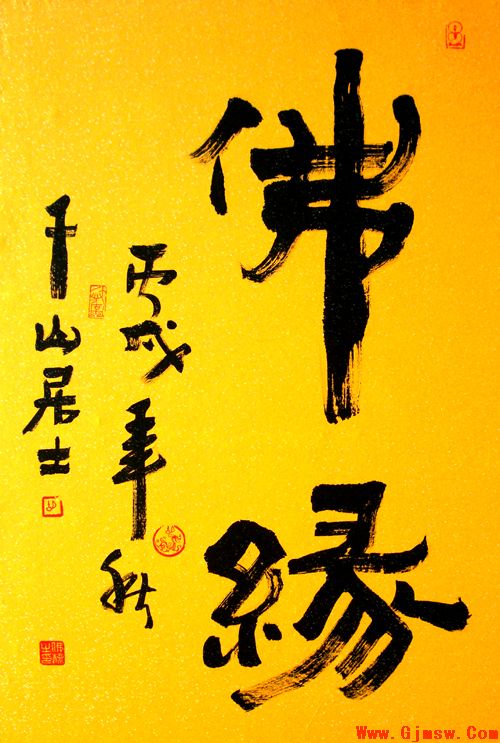 佛緣
丙戌年秋
千山居士
Www.Gjmsw.Com